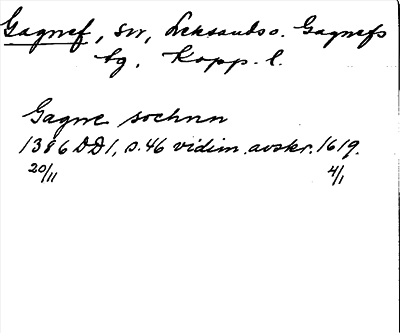 Gagnef, sn, Leksands o. Gagnefs
tg. Kopp. l.
Gagne sochnn
1386 DD1, s. 46 vidim. avskr. 1619.
20/11 4/1